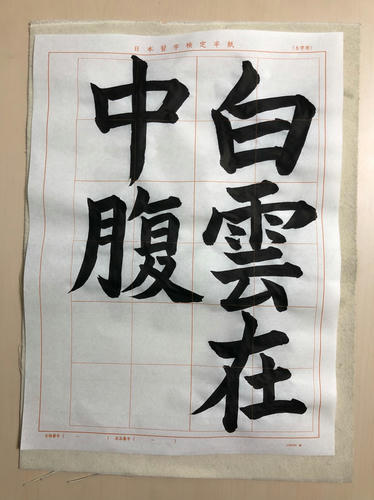 日本習字検定半紙
(5字用)
白雲在
中腹